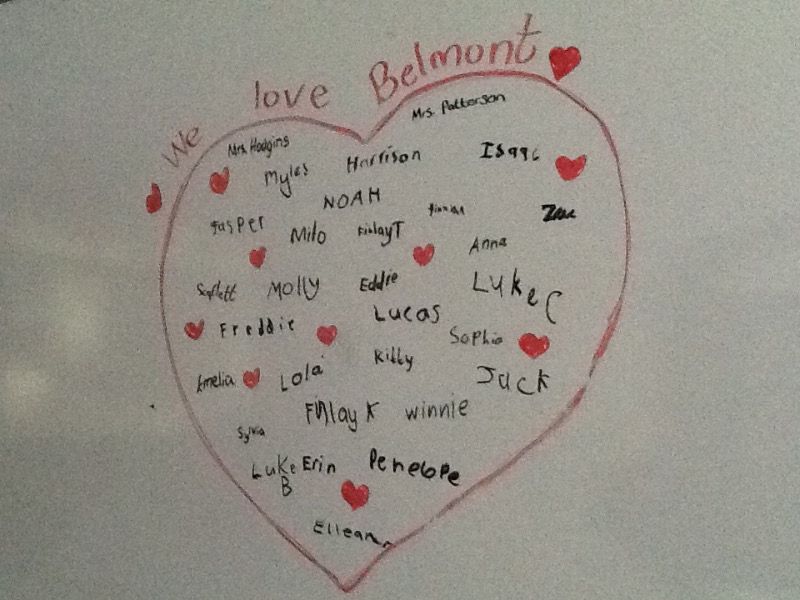 We love Belmont
Mrs. Patterson
Mrs. Hodgins
Myles Harrison Isaac
NOAH
Jasper Milo FinlayT Finnian
Anna
Scarlett MOLLY Eddie LukeC
Freddie Lucas
Sophia
Amelia Lola Kitty Jack
Finlay K winnie
Sylvia
Luke Erin Penelope
B